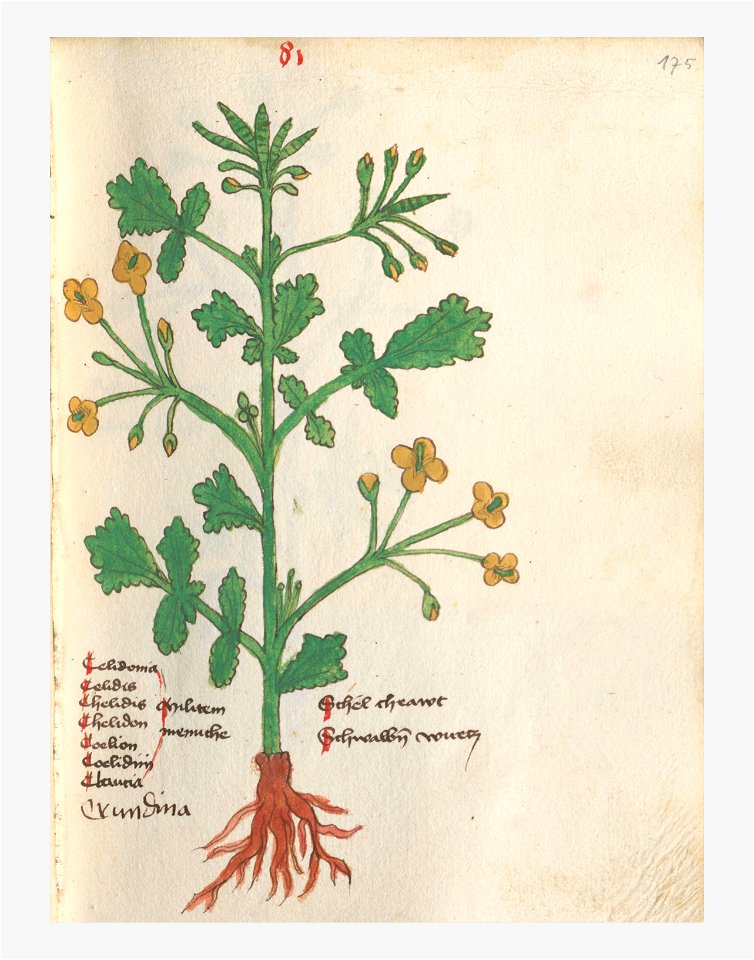 81
175
Celidoma
Celidis
Chelidis
Chelidon
Coelion
Coelidnij
Claucia
militem
memiche
Schel chrawt
Schwalbn wurtz